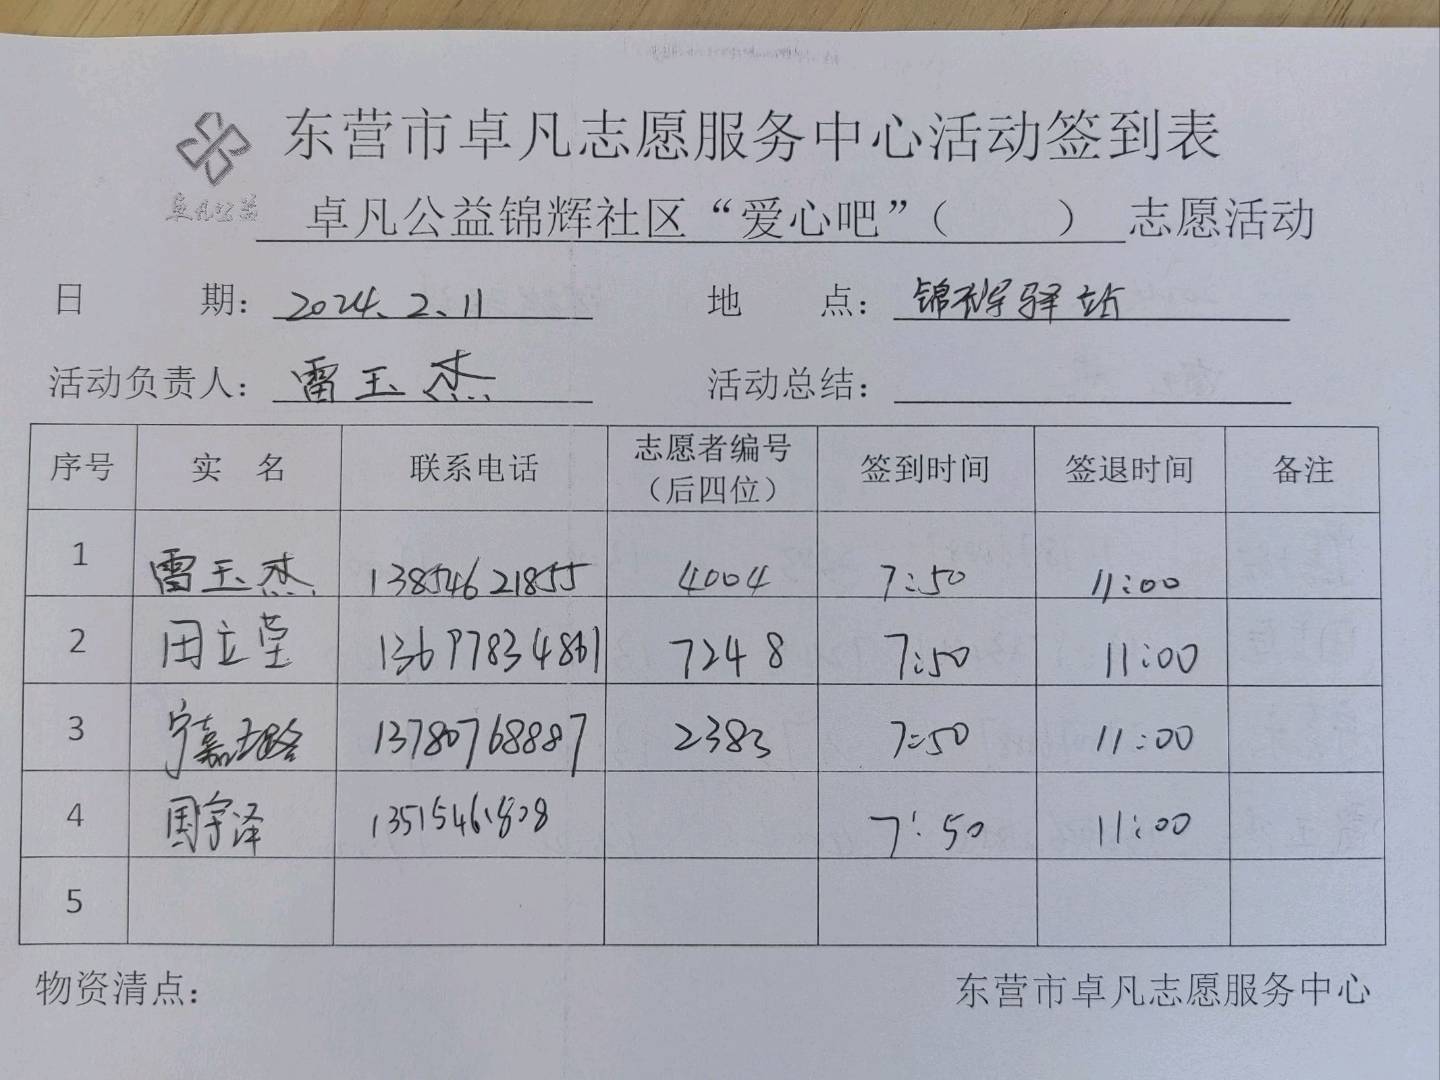 东营市卓凡志愿服务中心活动签到表
卓凡公益
卓凡公益锦辉社区“爱心吧”（ ） 志愿活动
日 期： 2024.2.11 地 点： 驿站
活动负责人： 雷玉杰 活动总结：
序号 实 名 联系电话 志愿者编号（后四位） 签到时间 签退时间 备注
1 雷玉杰 13854621855 4004 7:50 11:00
2 田立莹 13697834861 7248 7:50 11:00
3 宁嘉 13780768887 2383 7:50 11:00
4 国宇泽 13515461808 7:50 11:00
5
物资清点： 东营市卓凡志愿服务中心